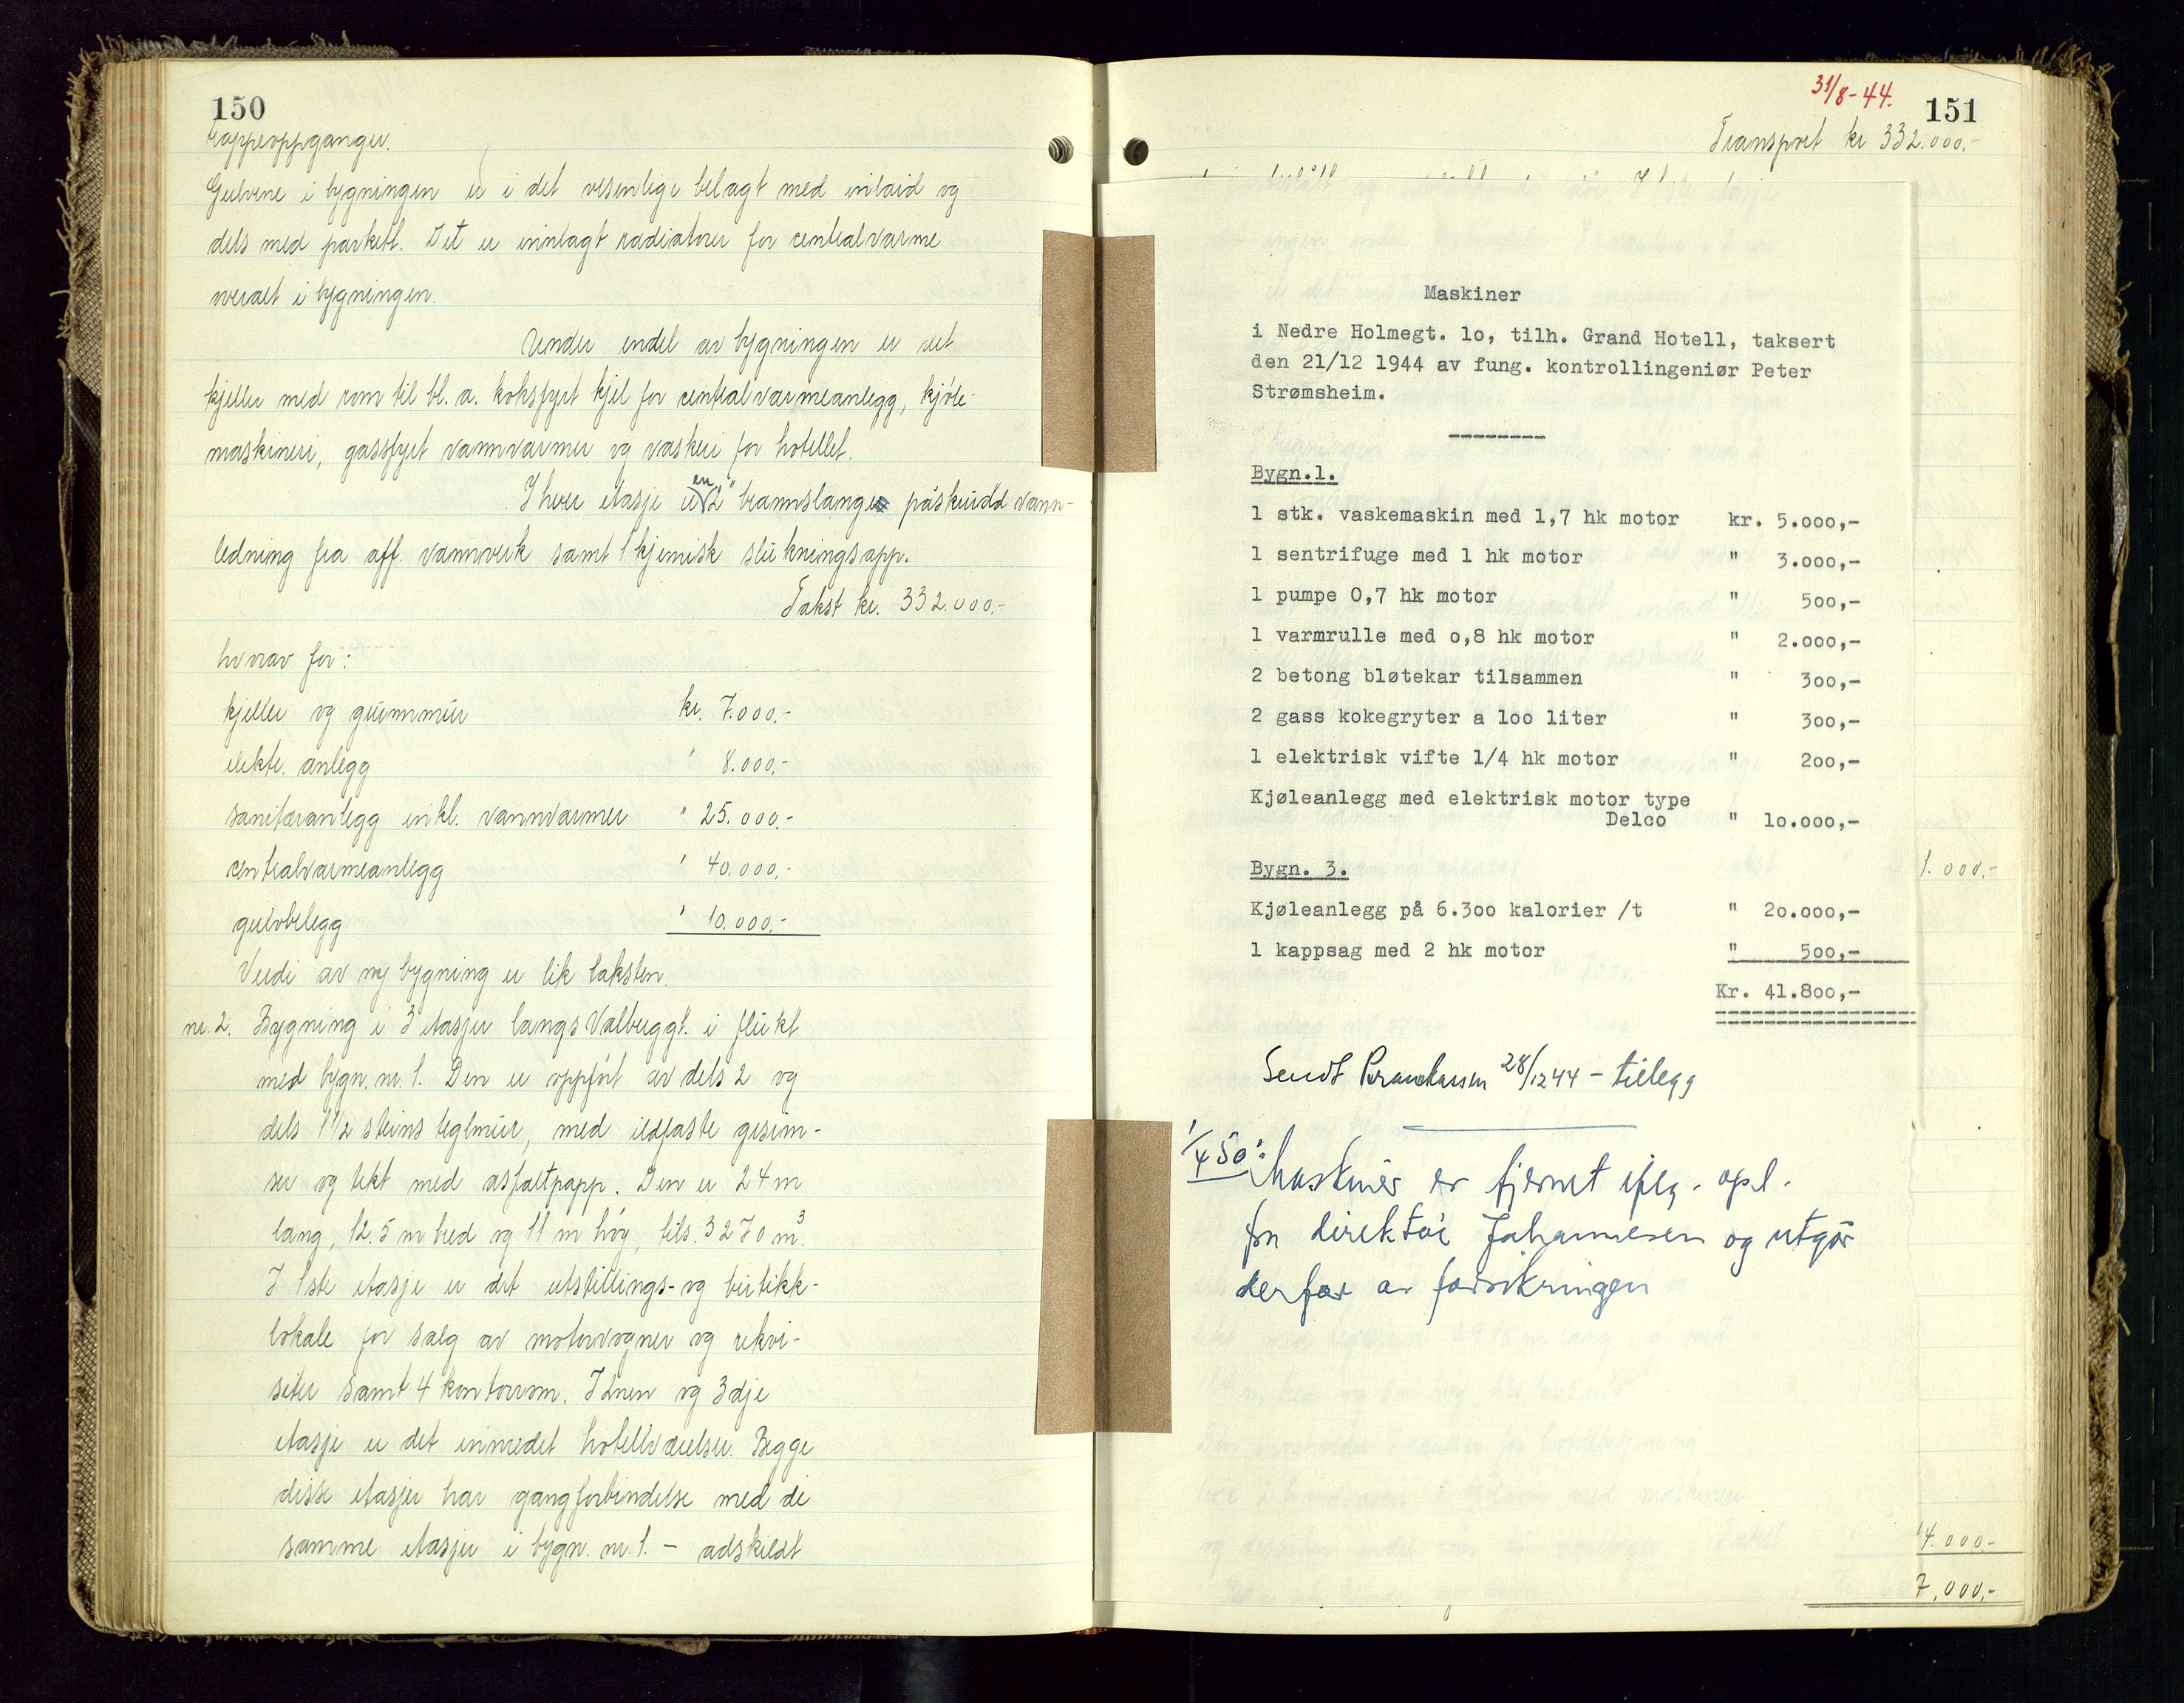 150
trappeoppganger.
Gulvene i bygningen er i det vesenlige belagt med inlaid og
dels med parkett. Det er innlagt radiatorer for centralvarme
overalt i bygningen.
Under endel av bygningen er det
kjeller med rom til bl. a. koksfyrt kjel for centralvarmeanlegg, kjøle-
maskineri, gassfyrt vannvarmer og vaskeri for hotellet.
I hver etasje er en 2" brannslange påskrudd vann-
ledning fra off. vannverk samt 1 kjemisk slukningsapp.
Takst kr. 332.000.-
hvorav for:
kjeller og grunnmur kr. 7.000.-
elektr. anlegg " 8.000.-
sanitæranlegg inkl. vannvarmer " 25.000.-
centralvarmeanlegg " 40.000.-
gulvbelegg " 10.000.-
Verdi av ny bygning er lik taksten.
nr. 2. Bygning i 3 etasjer langs Valbuggt. i flukt
med bygn. nr. 1. Den er oppført av dels 2 og
dels 1 1/2 steins teglmur, med ildfaste gesim-
ser og tekt med asfaltpapp. Den er 24 m
lang, 12.5 m bred og 11 m høy, tils. 3270 m³.
I 1ste etasje er det utstillings- og butikk-
lokale for salg av motorvogner og rekvi-
siter samt 4 kontorrom. I 2nen og 3dje
etasje er det innredet hotellværelser. Begge
disse etasjer har gangforbindelse med de
samme etasjer i bygn. nr. 1. - adskildt
31/8-44.
151
Transport kr 332.000.-
Maskiner
i Nedre Holmegt. 1o, tilh. Grand Hotell, taksert
den 21/12 1944 av fung. kontrollingeniør Peter
Strømsheim.
--------
Bygn.1.
1 stk. vaskemaskin med 1,7 hk motor kr. 5.000,-
1 sentrifuge med 1 hk motor " 3.000,-
1 pumpe 0,7 hk motor " 500,-
1 varmrulle med o,8 hk motor " 2.000,-
2 betong bløtekar tilsammen " 300,-
2 gass kokegryter a 1oo liter " 300,-
1 elektrisk vifte 1/4 hk motor " 200,-
Kjøleanlegg med elektrisk motor type
Delco " 10.000,-
Bygn. 3.
1.000.-
Kjøleanlegg på 6.300 kalorier /t " 20.000,-
1 kappsag med 2 hk motor " 500,-
Kr. 41.800,-
Sendt Brannkassen 28/12 44 - tillegg
1/4 50: Maskiner er fjernet ifølg. opl.
fra direktør Johannesen og utgår
derfor av forsikringen
4.000.-
7.000,-